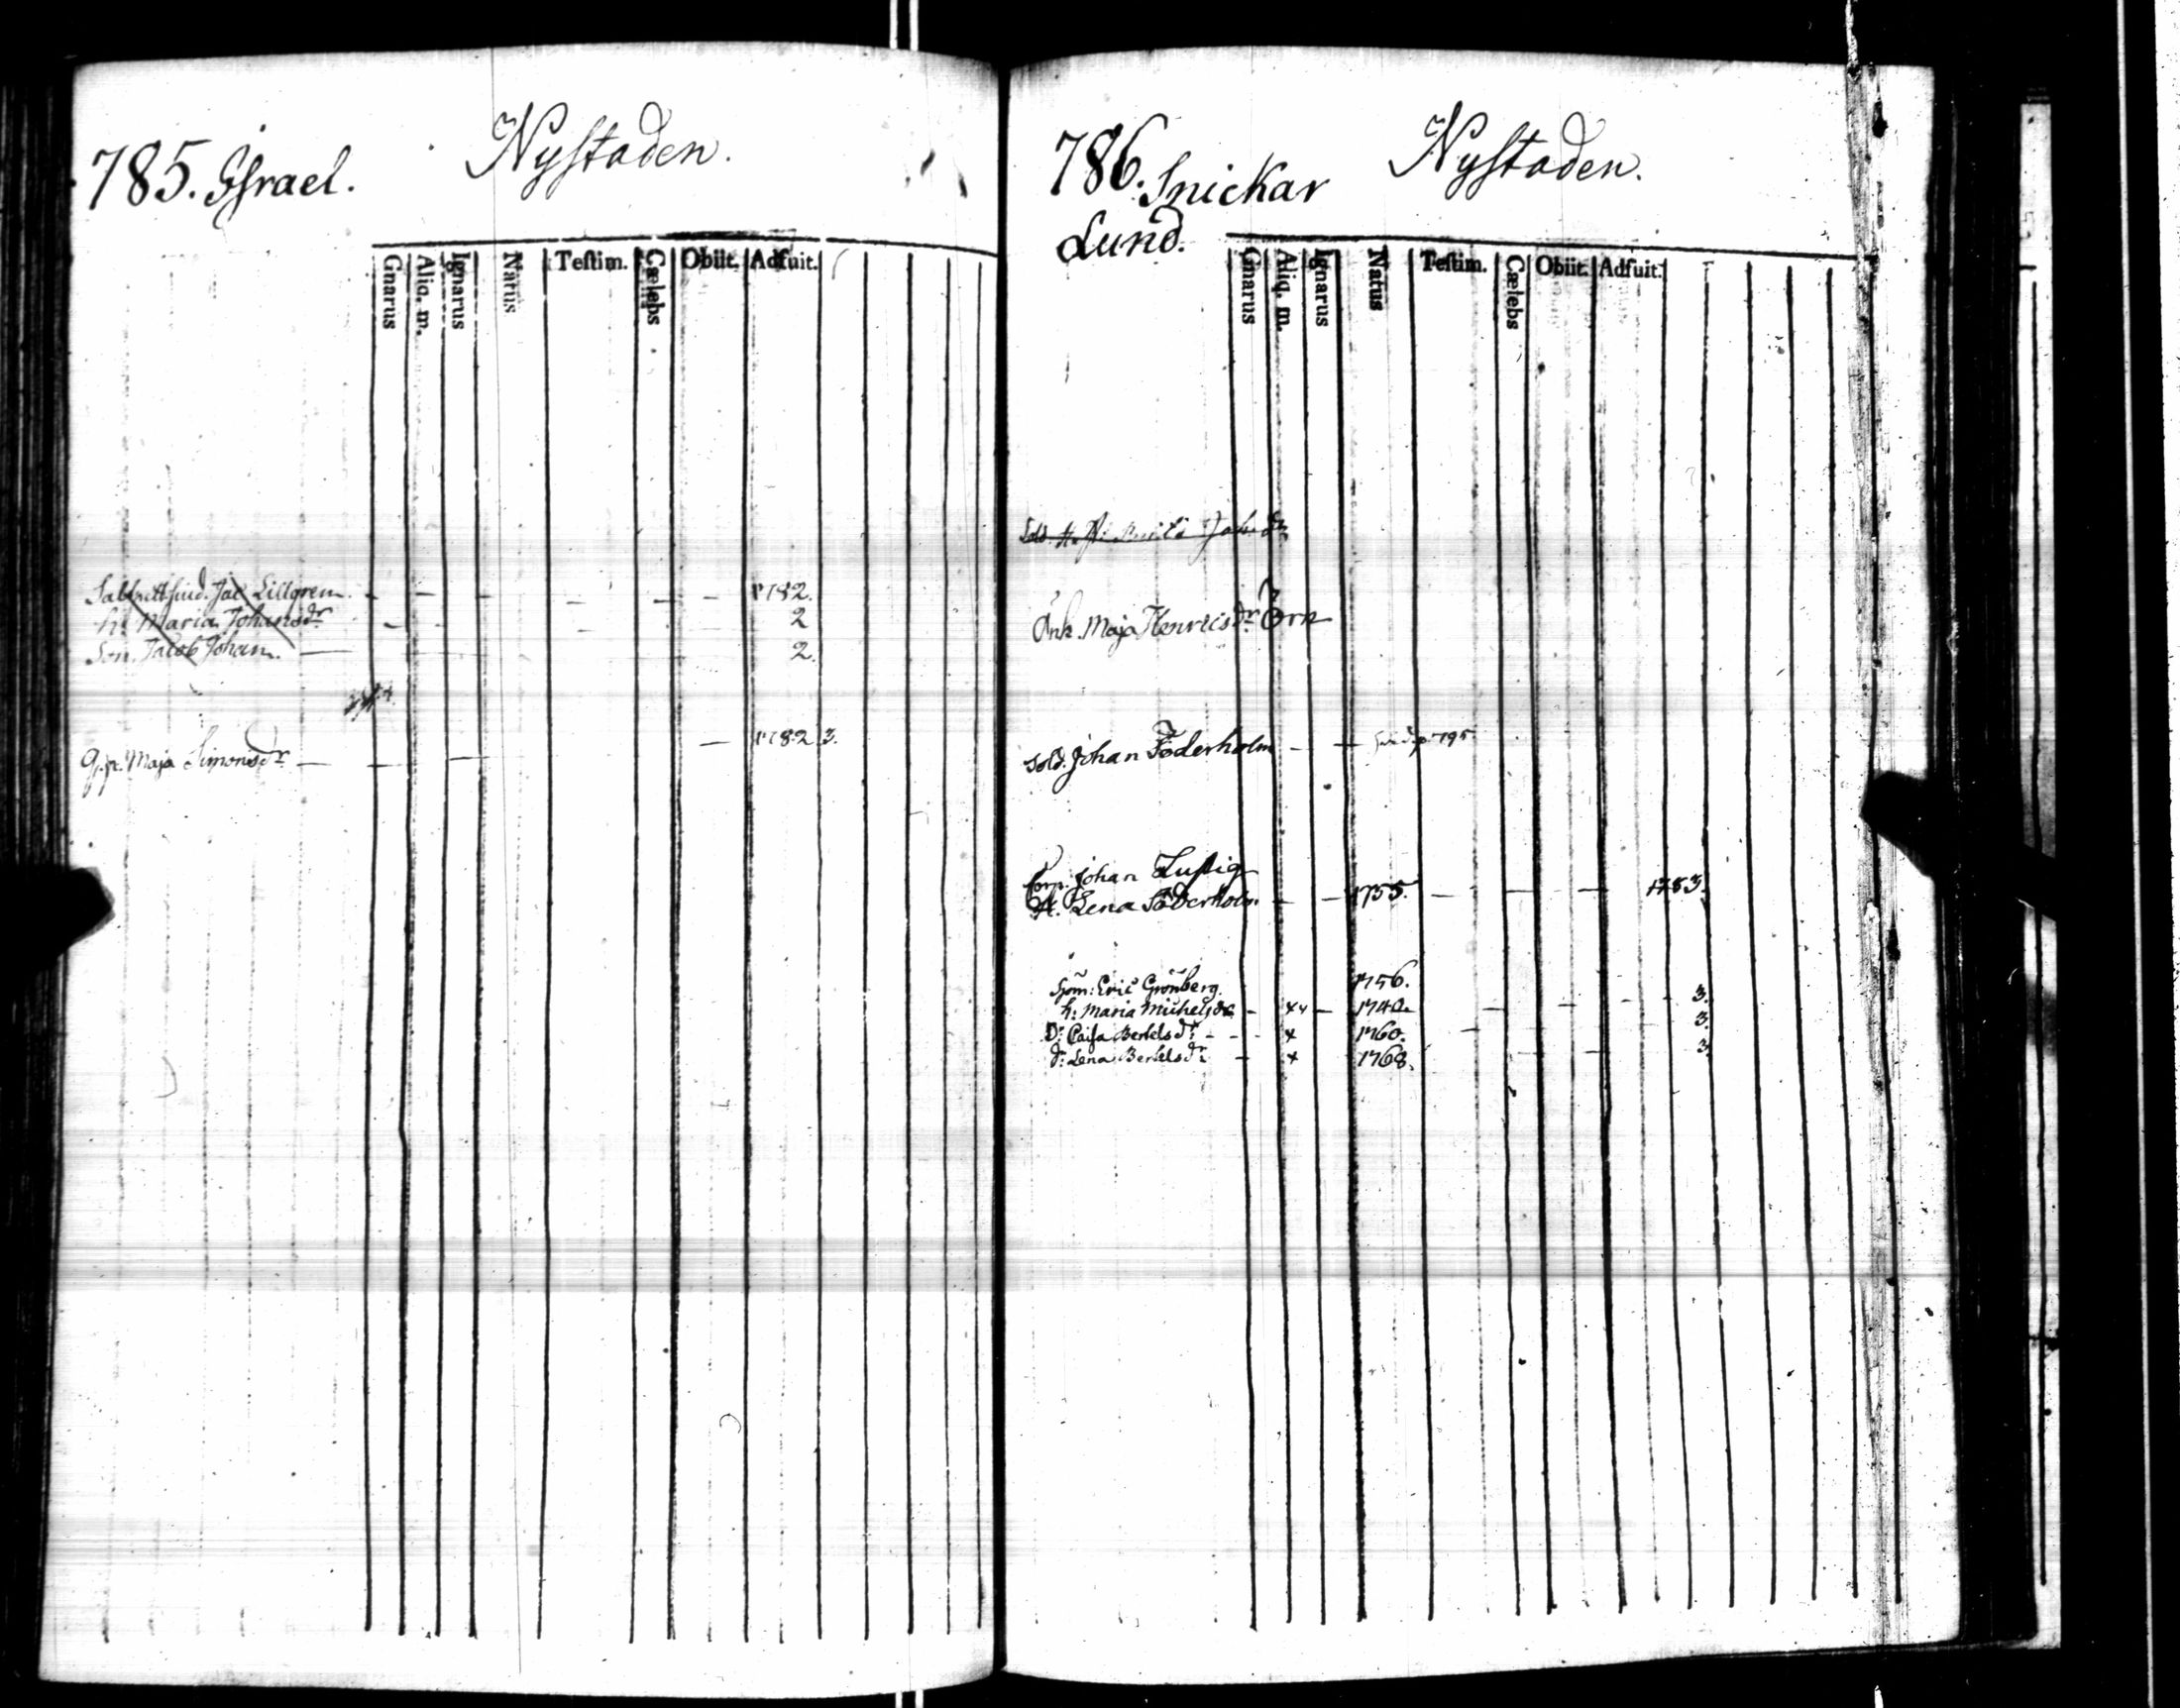 785. Israel. Nystaden.
Gnarus Aliq. m. Ignarus Natus Testim. Cælebs Obiit. Adfuit.
Jac Lillgren. - - - - - - 1782.
h: Maria Johansdr - - 2
Son. Jacob Johan. - 2.
Maja Simonsdr - - - - 1782 3.
786. Snickar Nystaden.
Lund.
Gnarus Aliq. m. Ignarus Natus Testim. Cælebs Obiit. Adfuit.
Sold. H:
Enk. Maja Henricsdr Örn
Sold. Johan Söderholm - - p. 795
Corp. Johan Lustig
H. Lena Söderholm - - 1755. - - - 1783.
Sjöm: Eric Grönberg. 1756.
h: Maria Michelsdr - ++ - 1742. - - - 3.
D: Caisa Bertelsdr - - + 1760. - 3.
d: Lena Bertelsdr - + 1768. - - 3.